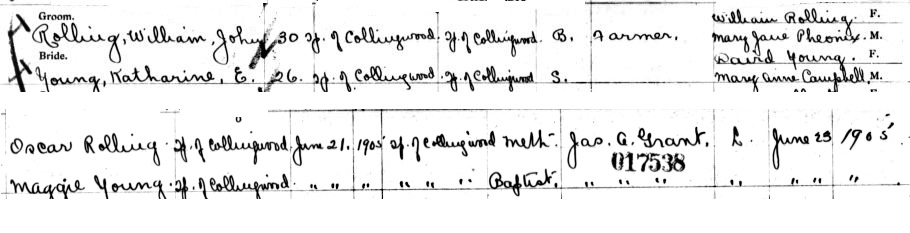 Groom.
Rolling, William, John 30 Tp. of Collingwood. Tp. of Collingwood. B. Farmer. William Rolling. F.
Mary Jane Pheonix. M.
Bride.
Young, Katharine, E. 26. Tp. of Collingwood. Tp. of Collingwood S. David Young. F.
Mary Anne Campbell, M.
Oscar Rolling Tp. of Collingwood. June 21. 1905 Tp. of Collingwood Meth. Jas. A. Grant. L. June 23 1905
017538
Maggie Young Tp. of Collingwood. " " " " " " Baptist. " " " " " " "